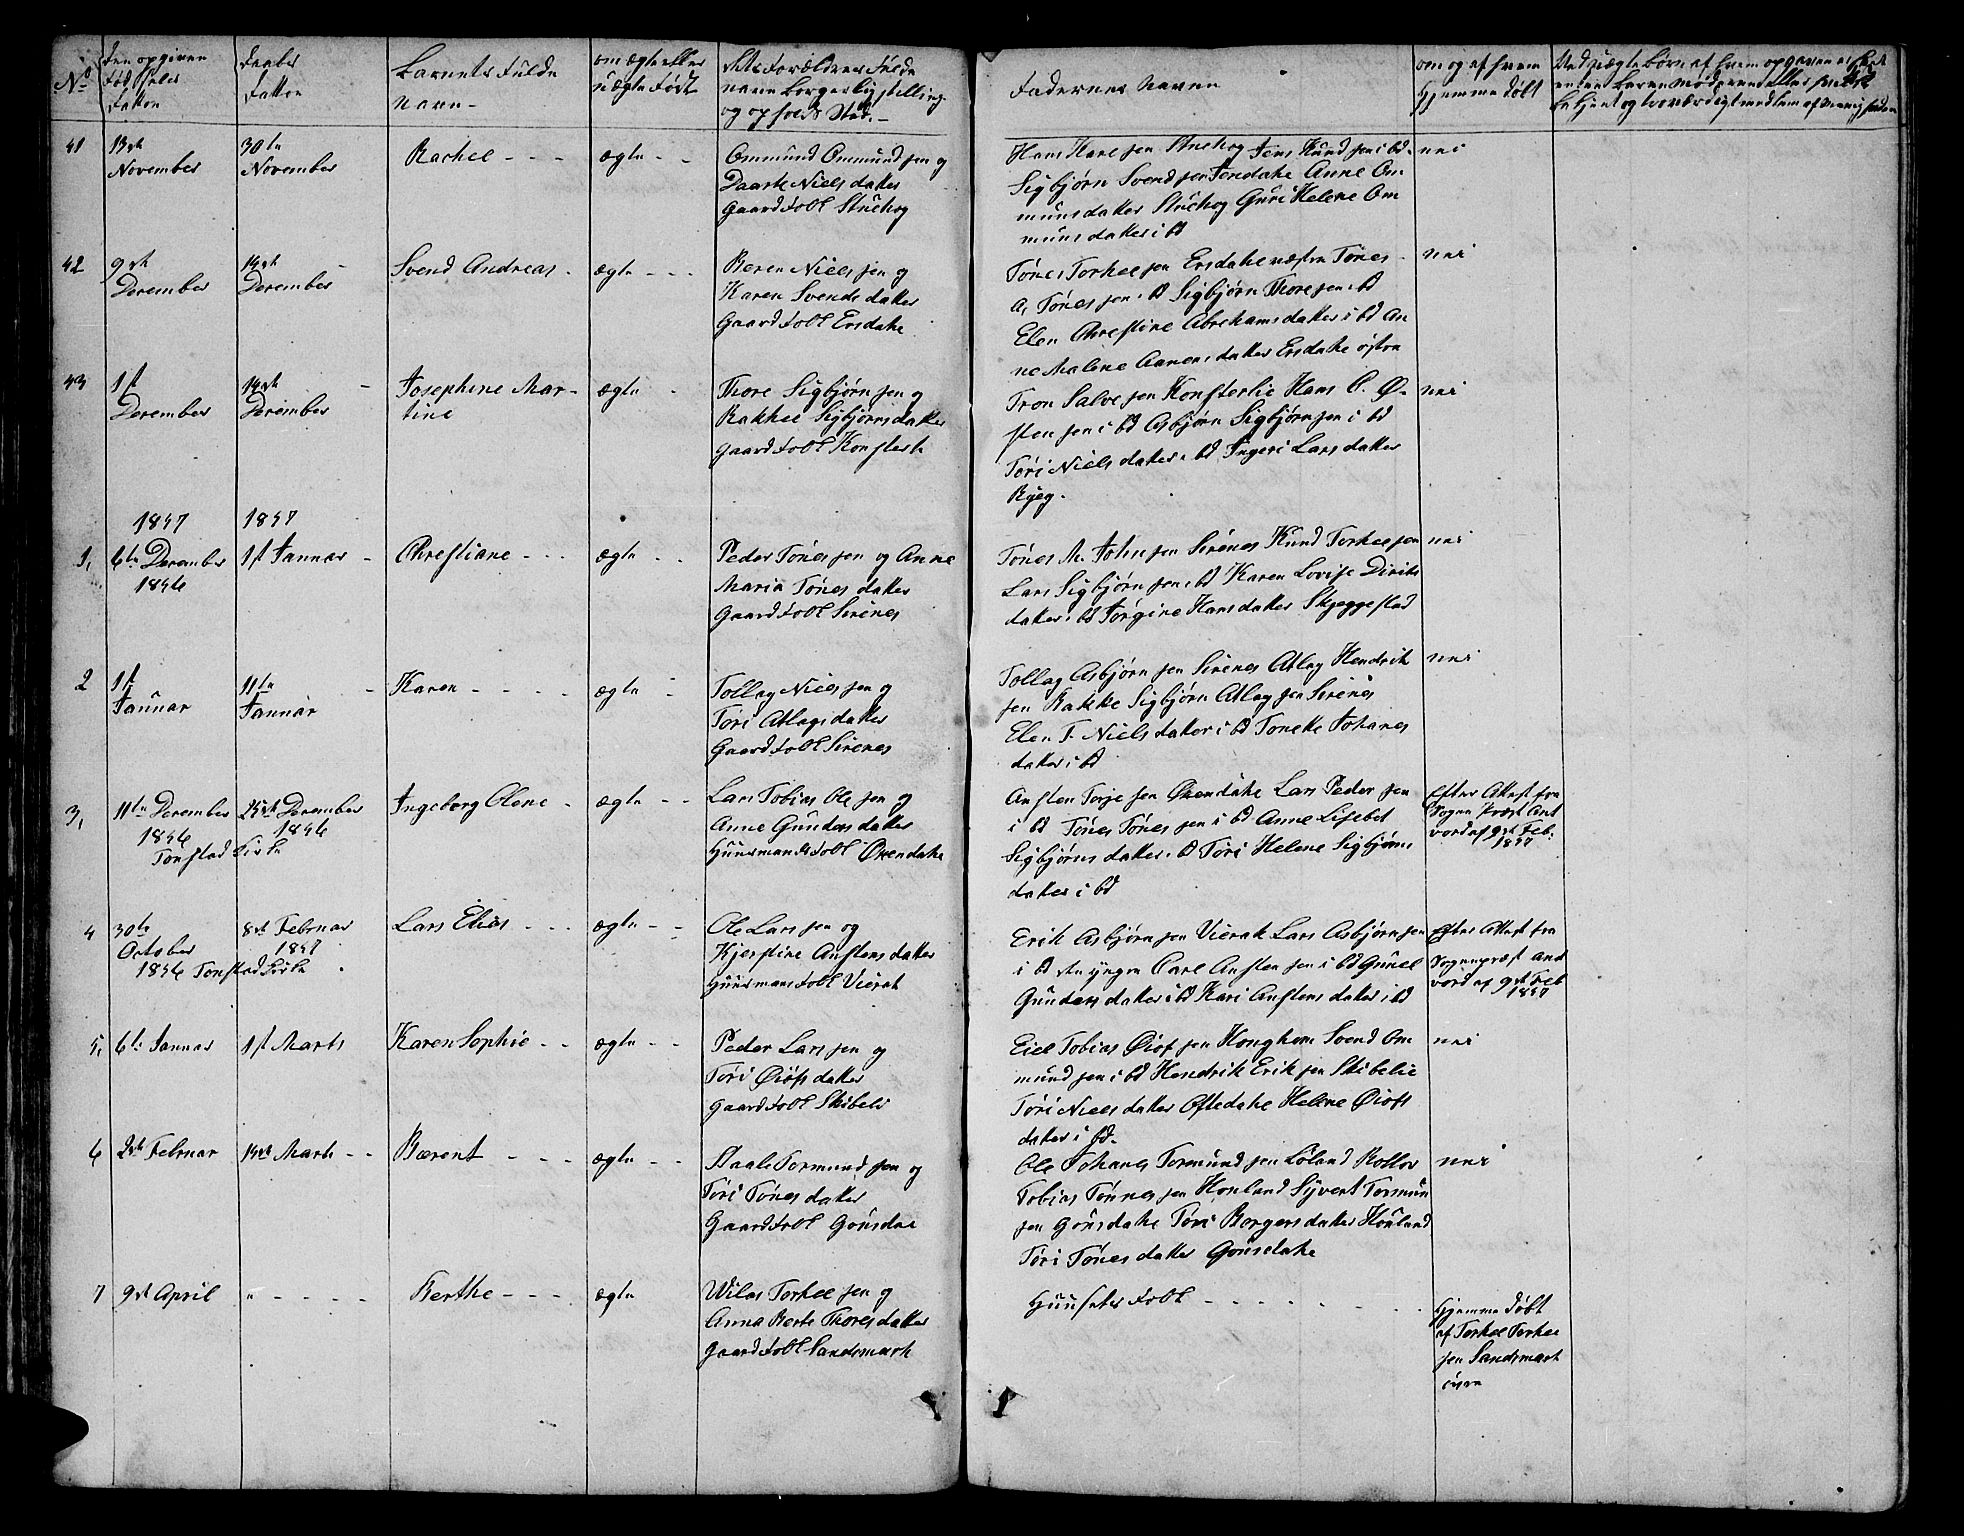 No
Den opgivne
Fødsels
Datton
Daabs
Datton
Barnets Fulde
Navn -
om ægte eller
Uægte Født
Forældres Fulde
navn Borgerlig stilling
og opholds Sted. -
Fadernes Navne
om og af hvem
Hjemme døbt
41
13de
November
30te
November
Rachel - - -
ægte - -
Ommund Ommund sen og
Daarte Niels datter
Gaardfolk Stuehog
Hans Karl sen Stuehog Jens Knud sen i bd.
Sigbjørn Svend sen Fendahe Anne Om
muns datter Stuehog Guri Helene Om
muns datter i bd
nei
42
9de
December
14de
December
Svend Andreas -
ægte - - -
Beren Niels sen og
Karen Svends datter
Gaardfolk Ersdahe
Tønes Torkel sen Ersdahe næstre Tønes
A. Tønes sen i bd Sigbjørn Thore sen i bd
Elen Chrestine Abrehams datter i bd An
ne Malene Aanens datter Ersdahe østre
nei
43
1st
December
14de
December
Josephine Mar-
tine
ægte -
Thore Sigbjørn sen og
Rakkel Sigbjørns datter
Gaardfolk Konsterli
Tron Salve sen Konsterlie Hans O. Ø-
sten sen i bd Asbjørn Sigbjørn sen i bd
Tori Niels datter i bd Ingeri Lars datter
Ryeg.
nei
1847
1847
1,
6te December
1846
1st Januar -
Chrestiane - - -
ægte - -
Peder Tønes sen og Anne
Maria Tønes datter
Gaardfolk Sirenes
Tønes M. John sen Sirenes Knud Torkel sen
Lars Sigbjørn sen i bd Karen Lovise Diriks
datter i bd Jørgine Hans datter Skjeggestad
nei
2
1st
Januar
11te
Januar
Karen - - - -
ægte -
Tollag Niels sen og
Tori Atlags datter
Gaardfolk Sirenes
Tollag Asbjørn sen Sirenes Atlag Hendrik
sen Rakke Sigbjørn Atlag sen Sirenes
Elen T. Niels datter i bd Toneke Johanes
datter i bd
nei
3,
11te December
1846
Tonstad Kirke
December
1846
Ingeborg Olene -
ægte - -
Lars Tobias Ole sen og
Anne Gunders datter
Huusmandsfolk Øxendahe
Ansten Torje sen Øxendahe Lars Peder sen
i bd Tønes Tønes sen i bd Anne Lisebet
Sigbjørns datter i bd Tori Helene Sigbjørns
datter i bd
Efter Attest fra
Sogne Præst Ant
vord af 9de Feb:
1847
4
30te
October
1846 Tonstad Kirke
8de Februar
1847
Lars Elias - - -
ægte - -
Ole Lars sen og
Kjerstine Anstens datter
Huusmansfolk Vierak
Erik Asbjørn sen Vierak Lars Asbjørn sen
i bd den yngre Carl Ansten sen i bd Gunel
Gunders datter i bd Kari Anstens datter i bd
Efter Attest fra
Sognepræst And
vord af 9de Feb
1847
5,
6te Januar
1st Marts
Karen Sophie - -
ægte - -
Peder Lars sen og
Tori Øiofs datter
Gaardfolk Skibeli
Eiel Tobias Øiof sen Honghom Svend Om
mund sen i bd Hendrik Erik sen Skibelie
Tori Niels datter Oftedahe Helene Øiofs
datter i bd.
nei
6
2de Februar
Marts - -
Bærent - - -
ægte - -
Staale Tormund sen og
Tori Tønes datter
Gaardfolk Gousdae
Ole Johanes Tormund sen Loland Rollov
Tobias Tønnes sen Honland Syvert Tormun
sen Gousdahe Tori Borgers datter Honland
Tori Tønes datter Gousdahe
nei
7
9de April
" - - - - -
Berthe - - -
ægte
Wilas Torkel sen og
Anna Berte Thores datter
Gaardfolk Sandsmark
Huusets Folk - - - - -
Hjemme døbt
af Torkel Torkel
sen Sandsmark